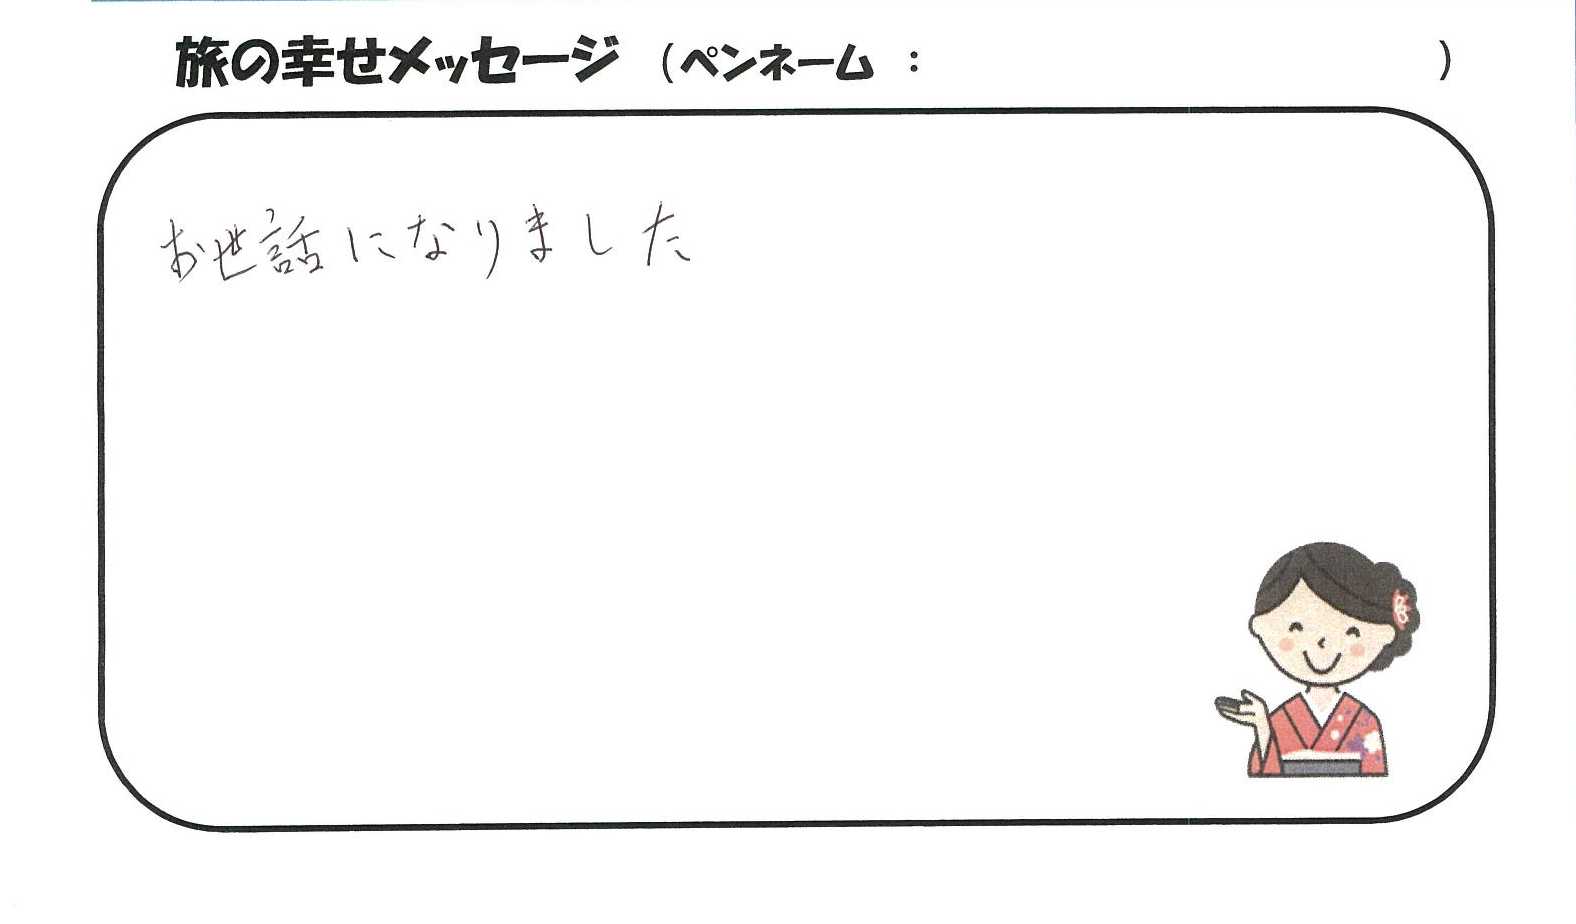 旅の幸せメッセージ （ペンネーム ： ）
お世話になりました